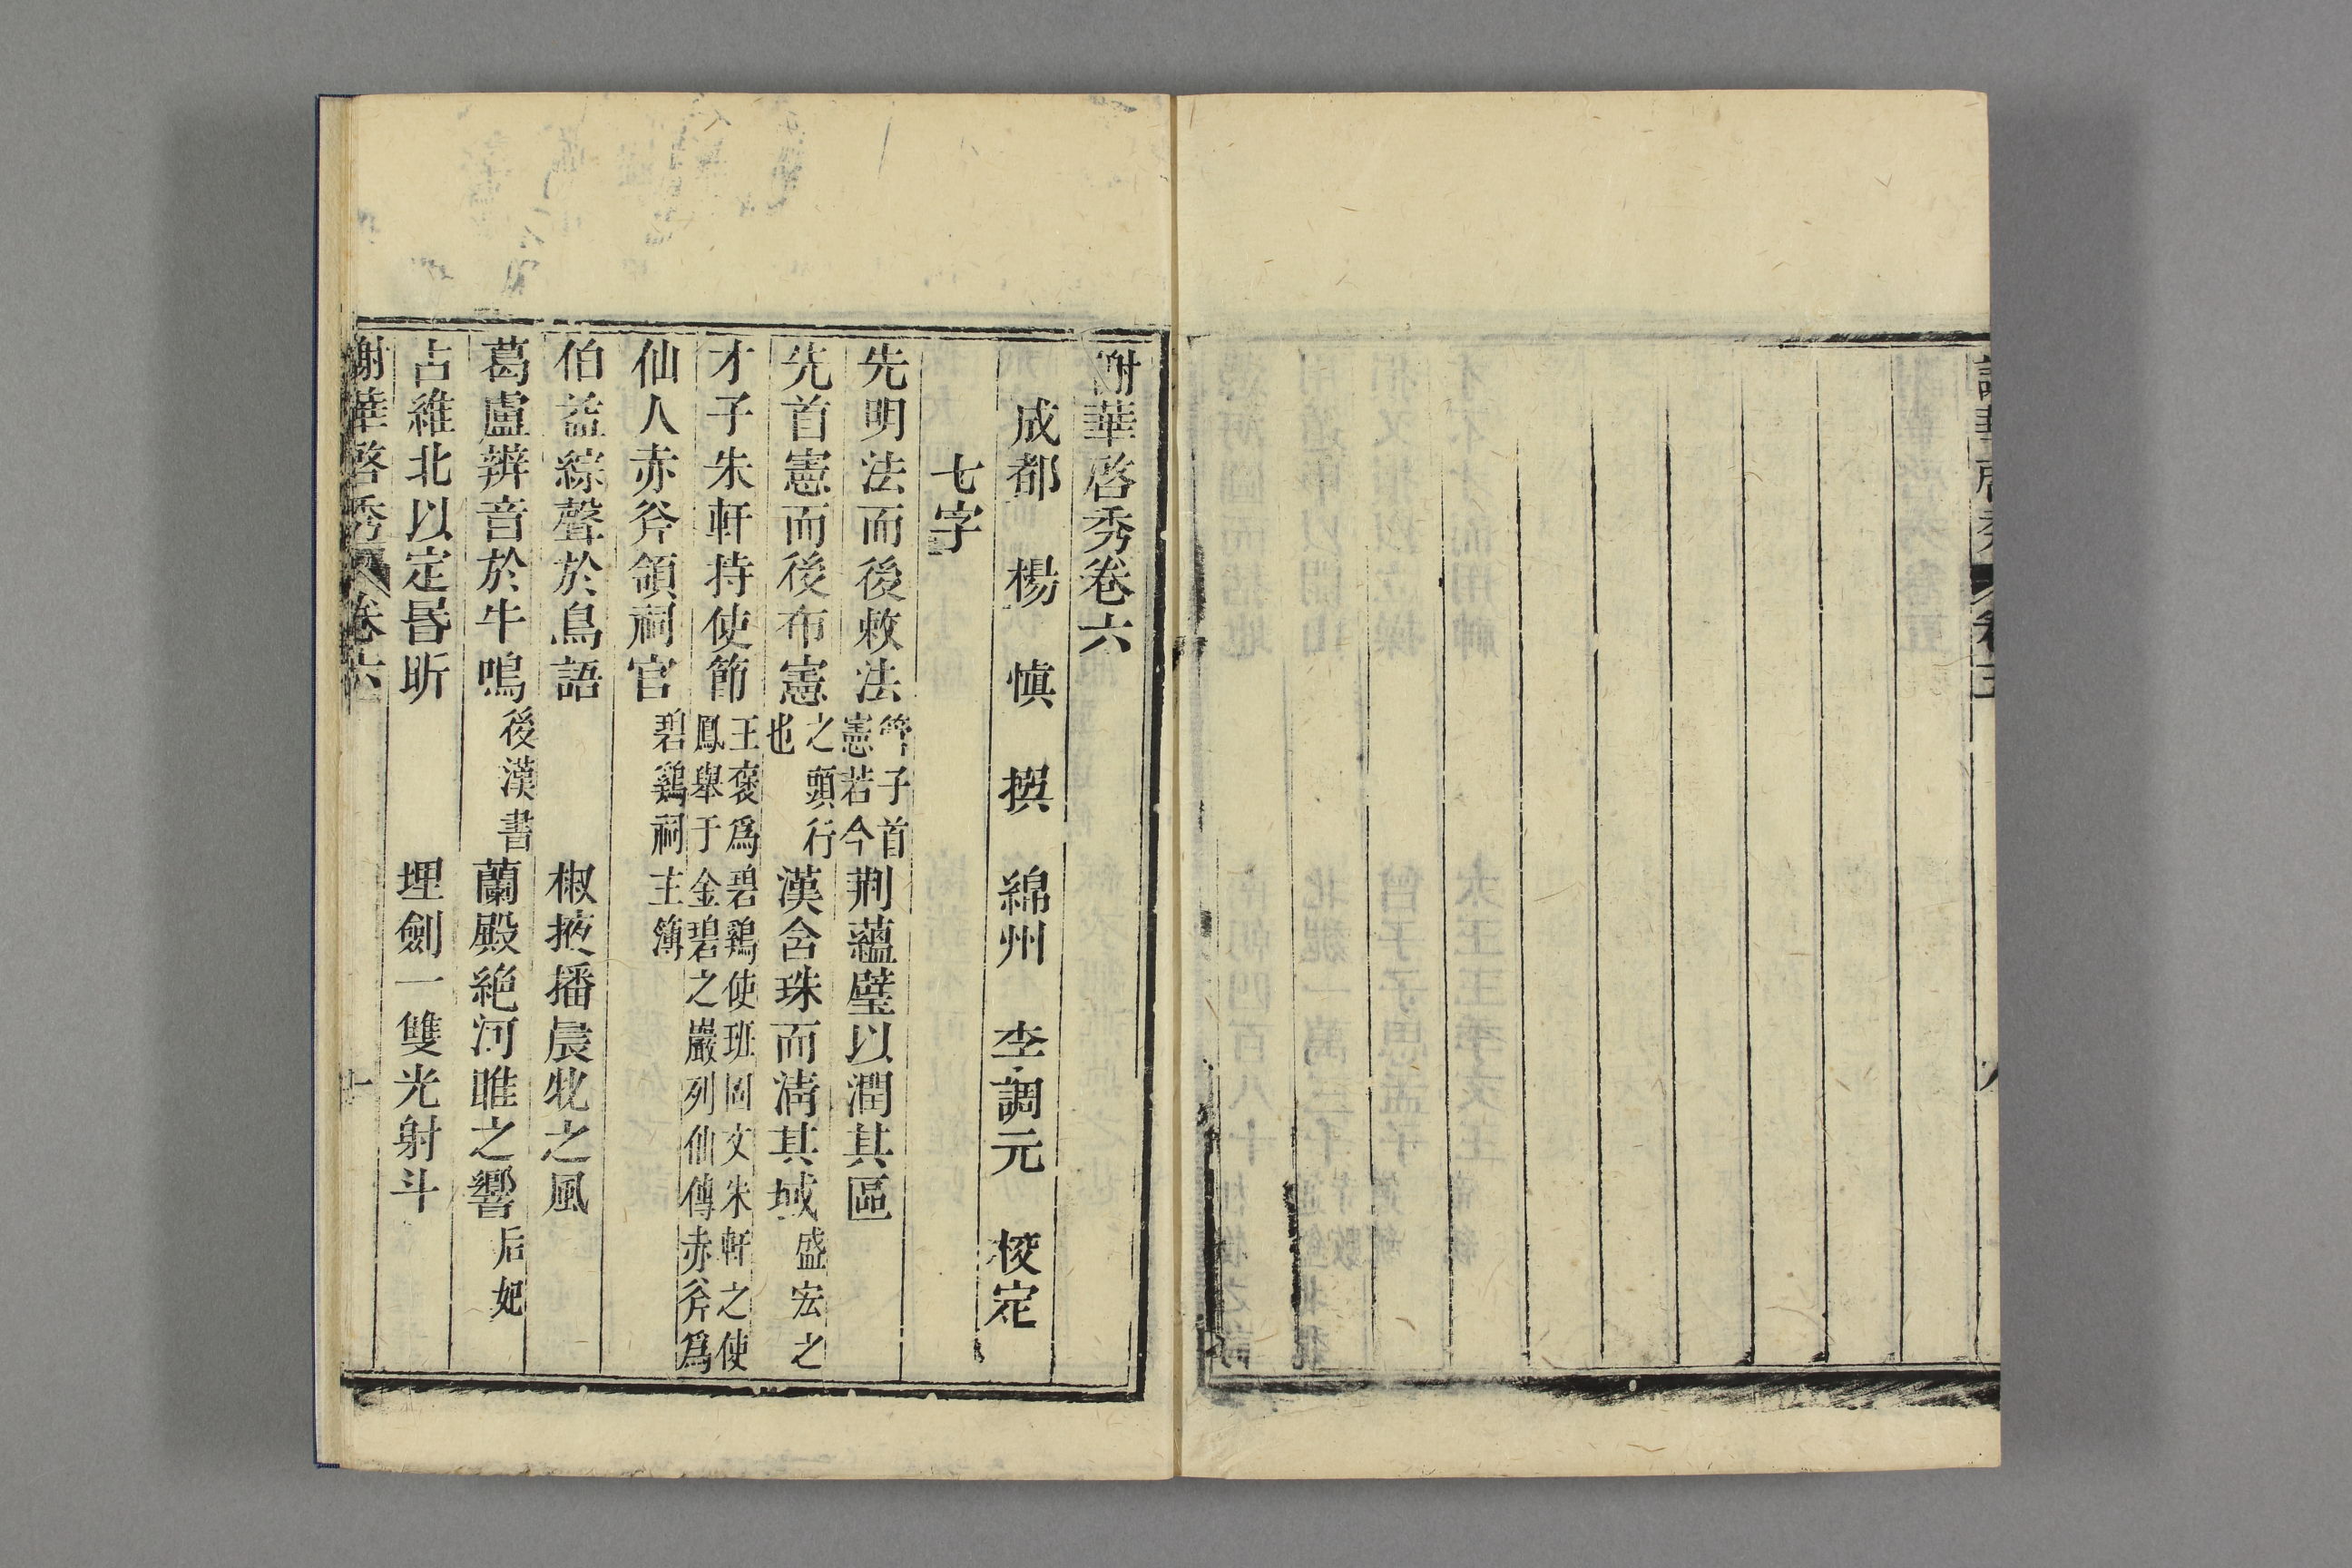 謝華啓秀卷六
成都 楊 慎 撰 綿州 李調元 校定
七字
先明法而後敕法 管子首憲若今 荆蘊璧以潤其區
先首憲而後布憲 之頭行也 漢含珠而淸其域 盛宏之
才子朱軒持使節 王褒爲碧鷄使班固文朱軒之使鳳舉于金碧之巖列仙傳赤斧爲
仙人赤斧領祠官 碧鷄祠主簿
伯益綜聲於鳥語 椒掖播晨牝之風
葛盧辨音於牛鳴 後漢書 蘭殿絶河雎之響 后妃
占維北以定昬昕 埋劍一雙光射斗
謝華啓秀 卷六